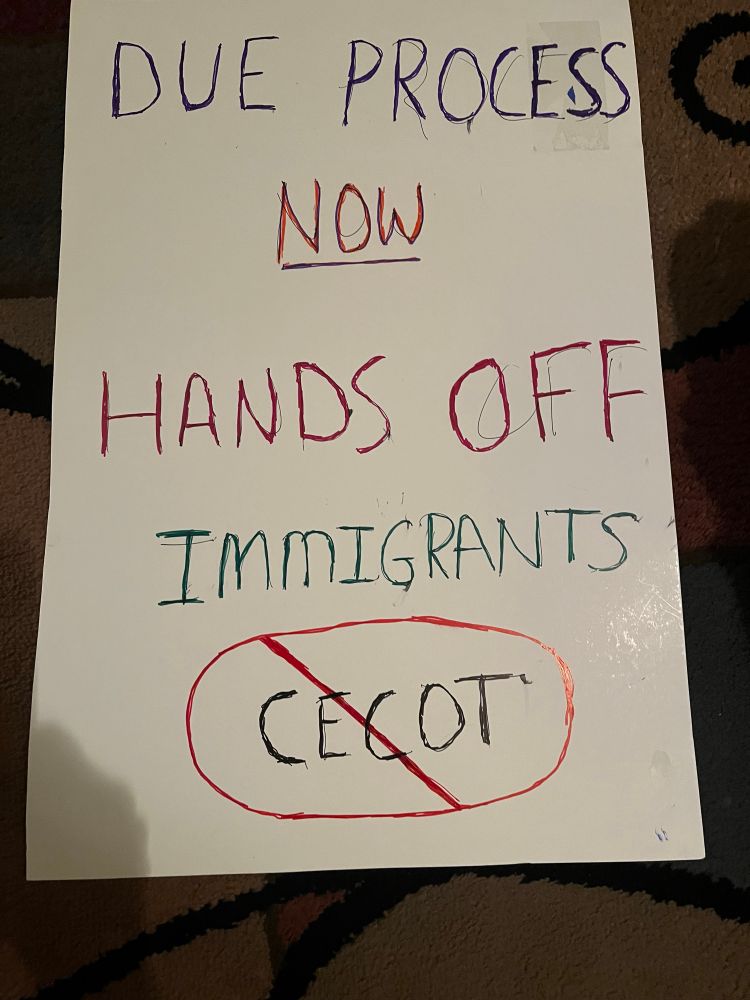 DUE PROCESS
NOW
HANDS OFF
IMMIGRANTS
CECOT